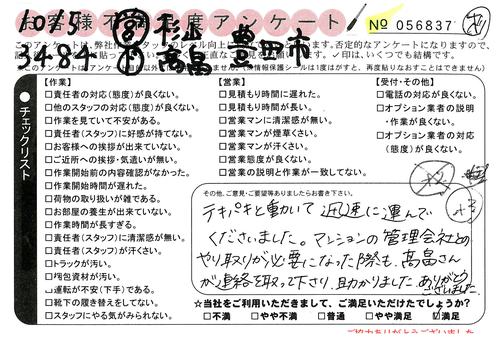 お客様不満足度アンケート
10/5 営 杉山 豊田市
3484 作 高畠
No 056837
●チェックリスト
【作業】
□責任者の対応(態度)が良くない。
□他のスタッフの対応(態度)が良くない。
□作業を見ていて不安がある。
□責任者(スタッフ)に好感が持てない。
□お客様への挨拶が出来ていない。
□ご近所への挨拶・気遣いが無い。
□作業開始前の内容確認がなかった。
□作業開始時間が遅れた。
□荷物の取り扱いが雑である。
□お部屋の養生が出来ていない。
□作業時間が長すぎる。
□責任者(スタッフ)に清潔感が無い。
□責任者(スタッフ)が汗くさい。
□トラックが汚い。
□梱包資材が汚い。
□運転が不安(下手)である。
□靴下の履き替えをしてない。
□スタッフにやる気がみられない。
【営業】
□見積もりに遅れた。
□見積もり時間が長い。
□営業マンに清潔感が無い。
□営業マンが煙草くさい。
□営業マンが汗くさい。
□営業態度が良くない。
□営業の説明と作業が一致してない。
【受付・その他】
□電話の対応が良くない。
□オプション業者の説明
・作業が良くない。
□オプション業者の対応
(態度)が良くない。
その他、ご意見・ご要望等ありましたらお書き下さい。
テキパキと動いて 迅速に運んで
くださいました。マンションの管理会社との
やり取りが必要になった際も、高畠さん
が連絡を取って下さり、助かりました。ありがとう
ございました。
☆当社をご利用いただきまして、ご満足いただけたでしょうか?
□不満 □やや不満 □普通 □やや満足 ☑満足
ご協力ありがとうございました